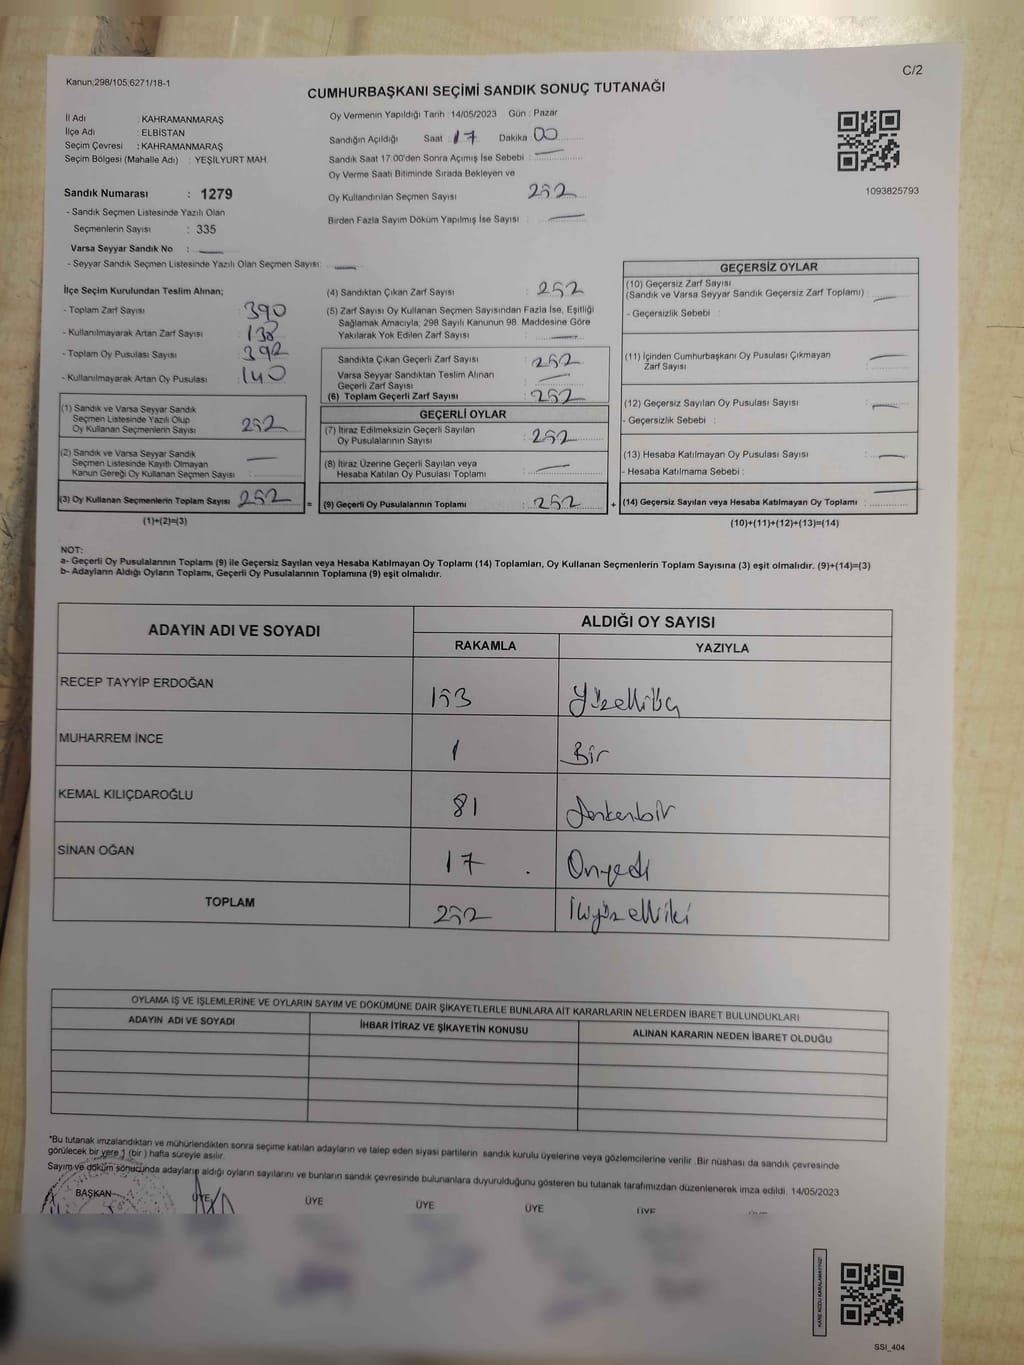 Kanun;298/105;6271/18-1
C/2
CUMHURBAŞKANI SEÇİMİ SANDIK SONUÇ TUTANAĞI
İl Adı : KAHRAMANMARAŞ
İlçe Adı : ELBİSTAN
Seçim Çevresi : KAHRAMANMARAŞ
Seçim Bölgesi (Mahalle Adı) : YEŞİLYURT MAH.
Sandık Numarası : 1279
- Sandık Seçmen Listesinde Yazılı Olan
Seçmenlerin Sayısı : 335
Varsa Seyyar Sandık No :
- Seyyar Sandık Seçmen Listesinde Yazılı Olan Seçmen Sayısı:
Oy Vermenin Yapıldığı Tarih : 14/05/2023 Gün : Pazar
Sandığın Açıldığı Saat : 17 Dakika : 00
Sandık Saat 17:00'den Sonra Açımış İse Sebebi :
Oy Verme Saati Bitiminde Sırada Bekleyen ve
Oy Kullandırılan Seçmen Sayısı 252
Birden Fazla Sayım Döküm Yapılmış İse Sayısı :
1093825793
İlçe Seçim Kurulundan Teslim Alınan;
- Toplam Zarf Sayısı : 390
- Kullanılmayarak Artan Zarf Sayısı : 138
- Toplam Oy Pusulası Sayısı : 392
- Kullanılmayarak Artan Oy Pusulası : 140
(1) Sandık ve Varsa Seyyar Sandık
Seçmen Listesinde Yazılı Olup
Oy Kullanan Seçmenlerin Sayısı : 252
(2) Sandık ve Varsa Seyyar Sandık
Seçmen Listesinde Kayıtlı Olmayan
Kanun Gereği Oy Kullanan Seçmen Sayısı :
(3) Oy Kullanan Seçmenlerin Toplam Sayısı : 252
(1)+(2)=(3)
(4) Sandıktan Çıkan Zarf Sayısı : 252
(5) Zarf Sayısı Oy Kullanan Seçmen Sayısından Fazla İse, Eşitliği
Sağlamak Amacıyla; 298 Sayılı Kanunun 98. Maddesine Göre
Yakılarak Yok Edilen Zarf Sayısı :
Sandıkta Çıkan Geçerli Zarf Sayısı : 252
Varsa Seyyar Sandıktan Teslim Alınan
Geçerli Zarf Sayısı :
(6) Toplam Geçerli Zarf Sayısı : 252
GEÇERLİ OYLAR
(7) İtiraz Edilmeksizin Geçerli Sayılan
Oy Pusulalarının Sayısı : 252
(8) İtiraz Üzerine Geçerli Sayılan veya
Hesaba Katılan Oy Pusulası Toplamı :
= (9) Geçerli Oy Pusulalarının Toplamı : 252
GEÇERSİZ OYLAR
(10) Geçersiz Zarf Sayısı
(Sandık ve Varsa Seyyar Sandık Geçersiz Zarf Toplamı) :
- Geçersizlik Sebebi :
(11) İçinden Cumhurbaşkanı Oy Pusulası Çıkmayan
Zarf Sayısı :
(12) Geçersiz Sayılan Oy Pusulası Sayısı :
- Geçersizlik Sebebi :
(13) Hesaba Katılmayan Oy Pusulası Sayısı :
- Hesaba Katılmama Sebebi :
+ (14) Geçersiz Sayılan veya Hesaba Katılmayan Oy Toplamı :
(10)+(11)+(12)+(13)=(14)
NOT:
a- Geçerli Oy Pusulalarının Toplamı (9) ile Geçersiz Sayılan veya Hesaba Katılmayan Oy Toplamı (14) Toplamları, Oy Kullanan Seçmenlerin Toplam Sayısına (3) eşit olmalıdır. (9)+(14)=(3)
b- Adayların Aldığı Oyların Toplamı, Geçerli Oy Pusulalarının Toplamına (9) eşit olmalıdır.
ADAYIN ADI VE SOYADI ALDIĞI OY SAYISI
RAKAMLA YAZIYLA
RECEP TAYYİP ERDOĞAN 153
MUHARREM İNCE 1 Bir
KEMAL KILIÇDAROĞLU 81 Seksenbir
SİNAN OĞAN 17 Onyedi
TOPLAM 252 İkiyüzelliiki
OYLAMA İŞ VE İŞLEMLERİNE VE OYLARIN SAYIM VE DÖKÜMÜNE DAİR ŞİKAYETLERLE BUNLARA AİT KARARLARIN NELERDEN İBARET BULUNDUKLARI
ADAYIN ADI VE SOYADI İHBAR İTİRAZ VE ŞİKAYETİN KONUSU ALINAN KARARIN NEDEN İBARET OLDUĞU
*Bu tutanak imzalandıktan ve mühürlendikten sonra seçime katılan adayların ve talep eden siyasi partilerin sandık kurulu üyelerine veya gözlemcilerine verilir. Bir nüshası da sandık çevresinde
görülecek bir yere 1 (bir) hafta süreyle asılır.
Sayım ve döküm sonucunda adayların aldığı oyların sayılarını ve bunların sandık çevresinde bulunanlara duyurulduğunu gösteren bu tutanak tarafımızdan düzenlenerek imza edildi. 14/05/2023
BAŞKAN ÜYE ÜYE ÜYE ÜYE ÜYE
KARE KODU KARALAMAYINIZ!
SSI_404